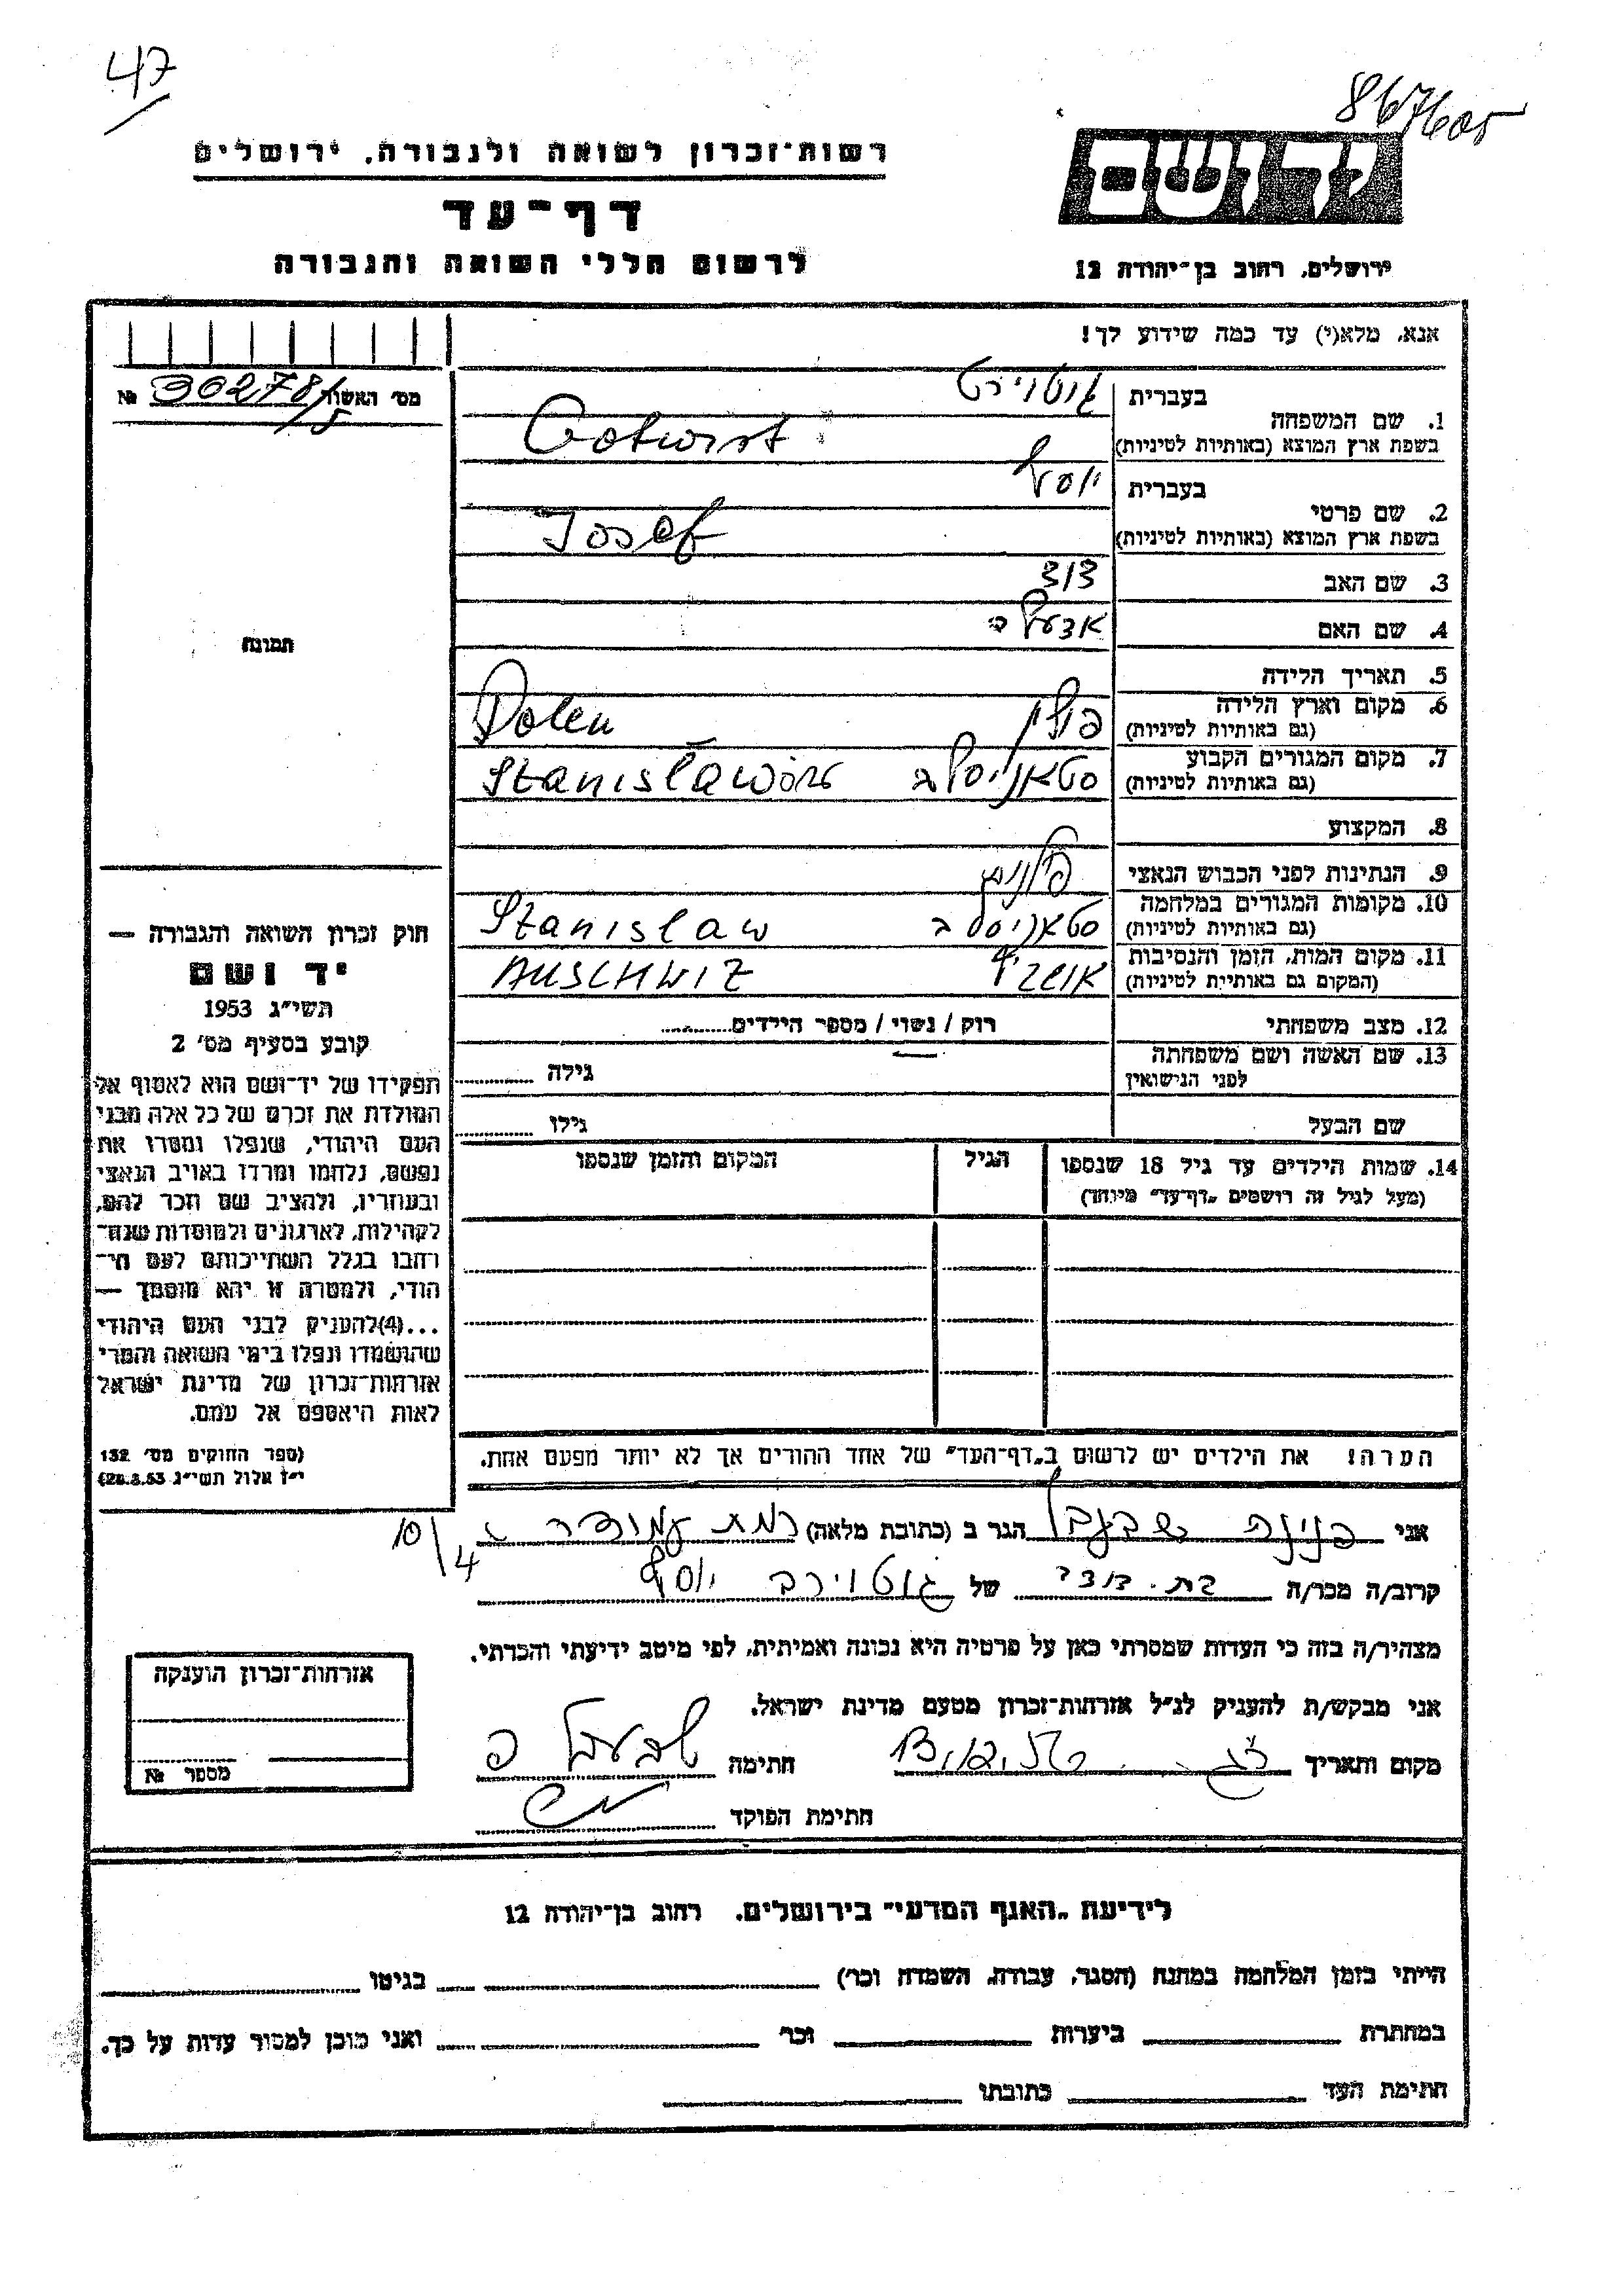 47
867605
רשות־זכרון לשואה ולגבורה, ירושלים
יד ושם
דף־עד
לרשום חללי השואה והגבורה
ירושלים, רחוב בן־יהודה 12
אנא, מלא(י) עד כמה שידוע לך!
מס' האשה № 30278/5
בעברית
1. שם המשפחה
בשפת ארץ המוצא (באותיות לטיניות) Gotwirt
בעברית יוסף
2. שם פרטי
בשפת ארץ המוצא (באותיות לטיניות) Josef
3. שם האב דוד
4. שם האם
תמונה
5. תאריך הלידה
6. מקום וארץ הלידה פולין Polen
(גם באותיות לטיניות)
7. מקום המגורים הקבוע סטאניסלב
(גם באותיות לטיניות)
8. המקצוע
9. הנתינות לפני הכבוש הנאצי פולנית
10. מקומות המגורים במלחמה סטאניסלב Stanislaw
(גם באותיות לטיניות)
11. מקום המות, הזמן והנסיבות AUSCHWIZ
(המקום גם באותיות לטיניות)
12. מצב משפחתי רוק / נשוי / מספר הילדים
13. שם האשה ושם משפחתה
לפני הנישואין גילה
שם הבעל גילו
14. שמות הילדים עד גיל 18 שנספו הגיל המקום והזמן שנספו
(מעל לגיל זה רושמים „דף־עד" מיוחד)
חוק זכרון השואה והגבורה —
יד ושם
תשי״ג 1953
קובע בסעיף מס' 2
תפקידו של יד־ושם הוא לאסוף אל
המולדת את זכרם של כל אלה מבני
העם היהודי, שנפלו ומסרו את
נפשם, נלחמו ומרדו באויב הנאצי
ובעוזריו, ולהציב שם וזכר להם,
לקהילות, לארגונים ולמוסדות שנח־
רבו בגלל השתייכותם לעם הי־
הודי, ולמטרה זו יהא מוסמך —
...(4)להעניק לבני העם היהודי
שהושמדו ונפלו בימי השואה והמרי
אזרחות־זכרון של מדינת ישראל
לאות היאספם אל עמם.
(ספר החוקים מס' 132
י״ז אלול תשי״ג 28.8.53)
הערה! את הילדים יש לרשום ב„דף־העד" של אחד ההורים אך לא יותר מפעם אחת.
אני פנינה הגר ב (כתובת מלאה) רמת
10/4
קרוב/ה מכר/ה בת־דודה של יוסף
מצהיר/ה בזה כי העדות שמסרתי כאן על פרטיה היא נכונה ואמיתית, לפי מיטב ידיעתי והכרתי.
אני מבקש/ת להעניק לנ״ל אזרחות־זכרון מטעם מדינת ישראל.
מקום ותאריך חתימה
חתימת הפוקד
אזרחות־זכרון הוענקה
מספר №
לידיעת „האגף המדעי" בירושלים, רחוב בן־יהודה 12
הייתי בזמן המלחמה במחנה (הסגר, עבודה, השמדה וכר') בגיטו
במחתרת ביערות וכר' ואני מוכן למסור עדות על כך.
חתימת העד כתובתו